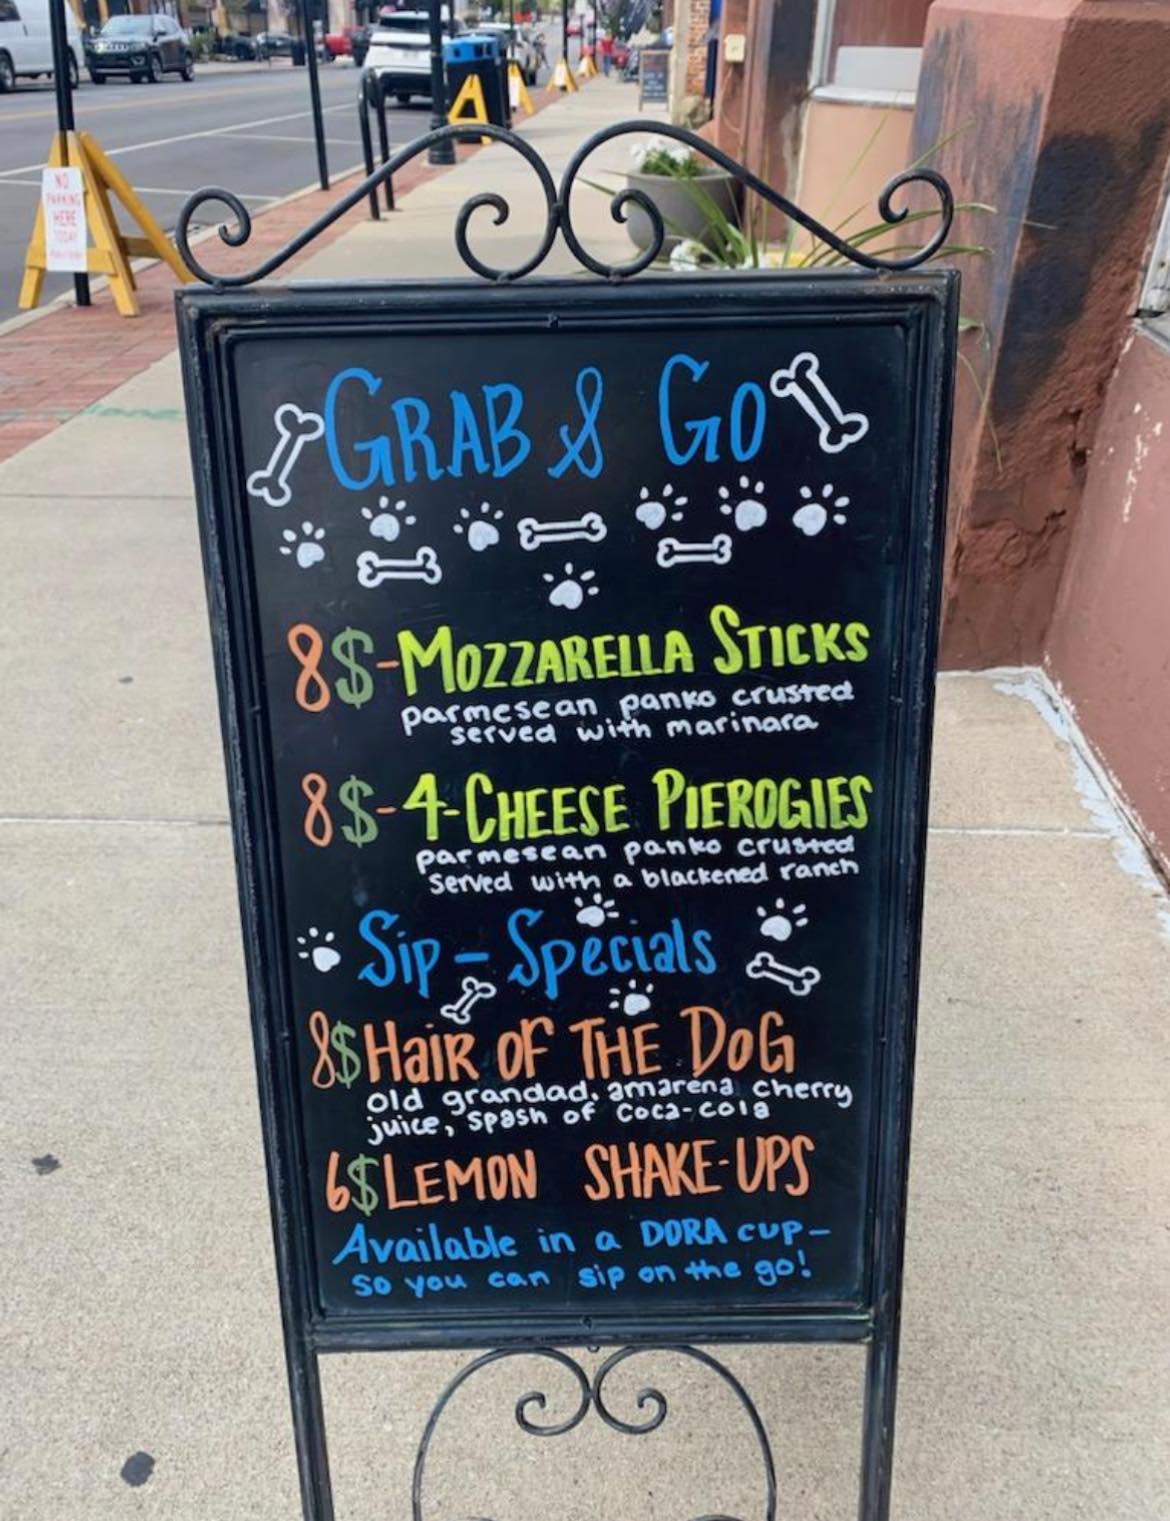 NO
PARKING
HERE
TODAY
GRAB & GO
8$-MOZZARELLA STICKS
parmesean panko crusted
served with marinara
8$-4-CHEESE PIEROGIES
parmesean panko crusted
served with a blackened ranch
Sip-Specials
8$ HaiR OF THE DOG
old grandad, amarena cherry
juice, spash of Coca-cola
6$ LEMON SHAKE-UPS
Available in a DORA cup-
so you can sip on the go!